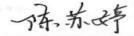 陈苏婷